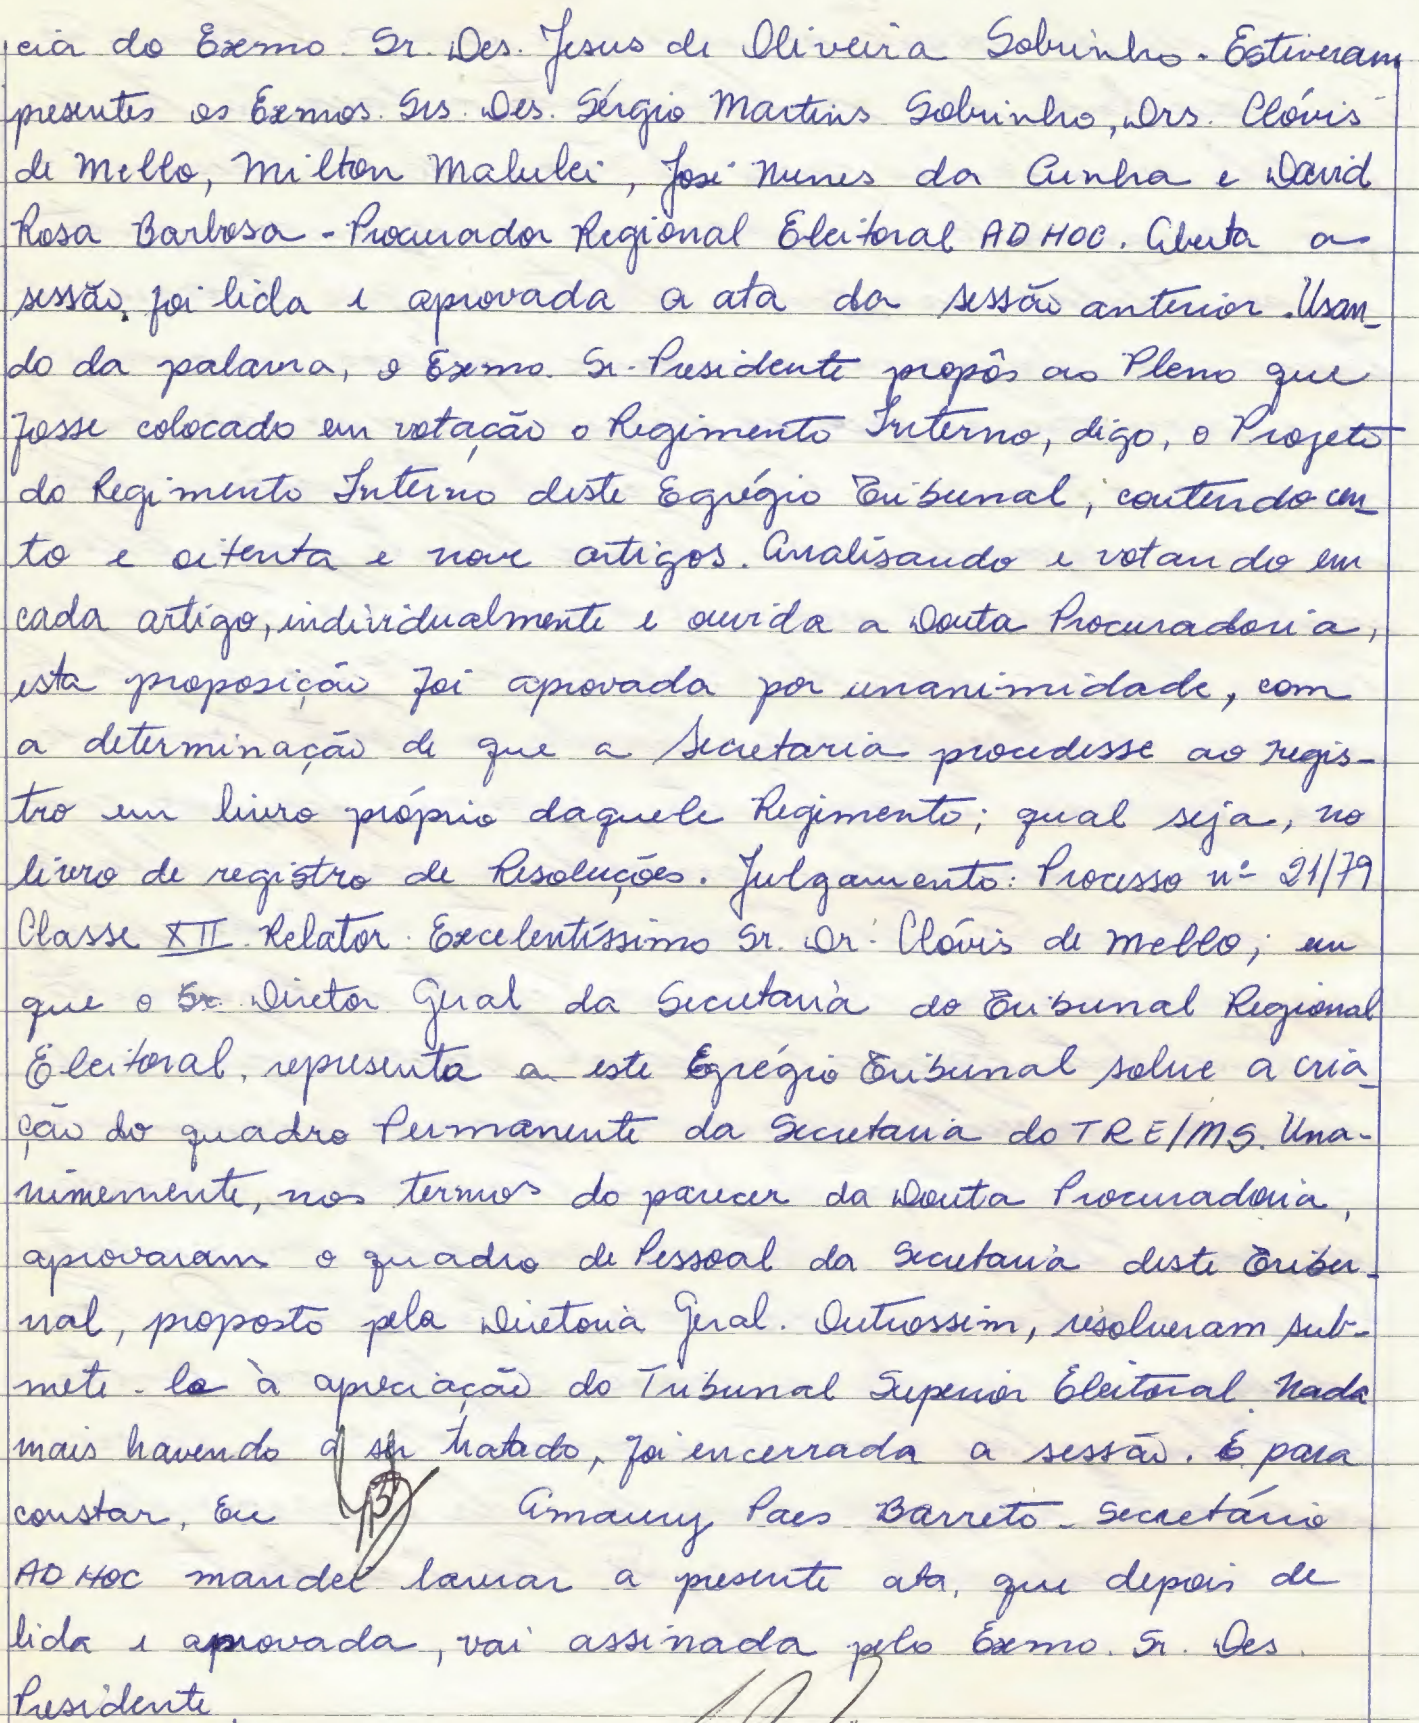 cia do Exmo. Sr. Des. Jesus de Oliveira Sobrinho. Estiveram
presentes os Exmos. Srs. Des. Sérgio Martins Sobrinho, Drs. Clóvis
de Mello, Milton Malulei, José Nunes da Cunha e David
Rosa Barbosa - Procurador Regional Eleitoral AD HOC. Aberta a
sessão, foi lida e aprovada a ata da sessão anterior. Usan_
do da palavra, o Exmo. Sr. Presidente propôs ao Pleno que
fosse colocado em votação o Regimento Interno, digo, o Projeto
do Regimento Interno deste Egrégio Tribunal, contendo cen_
to e oitenta e nove artigos. Analisando e votando em
cada artigo, individualmente e ouvida a Douta Procuradoria,
esta proposição foi aprovada por unanimidade, com
a determinação de que a Secretaria procedesse ao regis-
tro em livro próprio daquele Regimento; qual seja, no
livro de registro de Resoluções. Julgamento: Processo nº 21/79
Classe XII. Relator. Excelentíssimo Sr. Dr. Clóvis de Mello; em
que o Sr. Diretor Geral da Secretaria do Tribunal Regional
Eleitoral, representa a este Egrégio Tribunal sobre a cria_
ção do quadro Permanente da Secretaria do TRE/MS. Una-
nimemente, nos termos do parecer da Douta Procuradoria,
aprovaram o quadro de Pessoal da Secretaria deste Tribu_
nal, proposto pela Diretoria Geral. Outrossim, resolveram sub-
mete-lo à apreciação do Tribunal Superior Eleitoral. Nada
mais havendo a ser tratado, foi encerrada a sessão. E para
constar, Eu Amaury Paes Barreto - Secretário
AD HOC mandei lavrar a presente ata, que depois de
lida e aprovada, vai assinada pelo Exmo. Sr. Des.
Presidente.